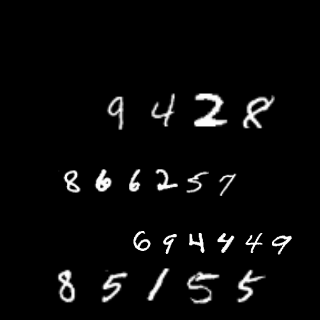 9428
866257
694449
85155